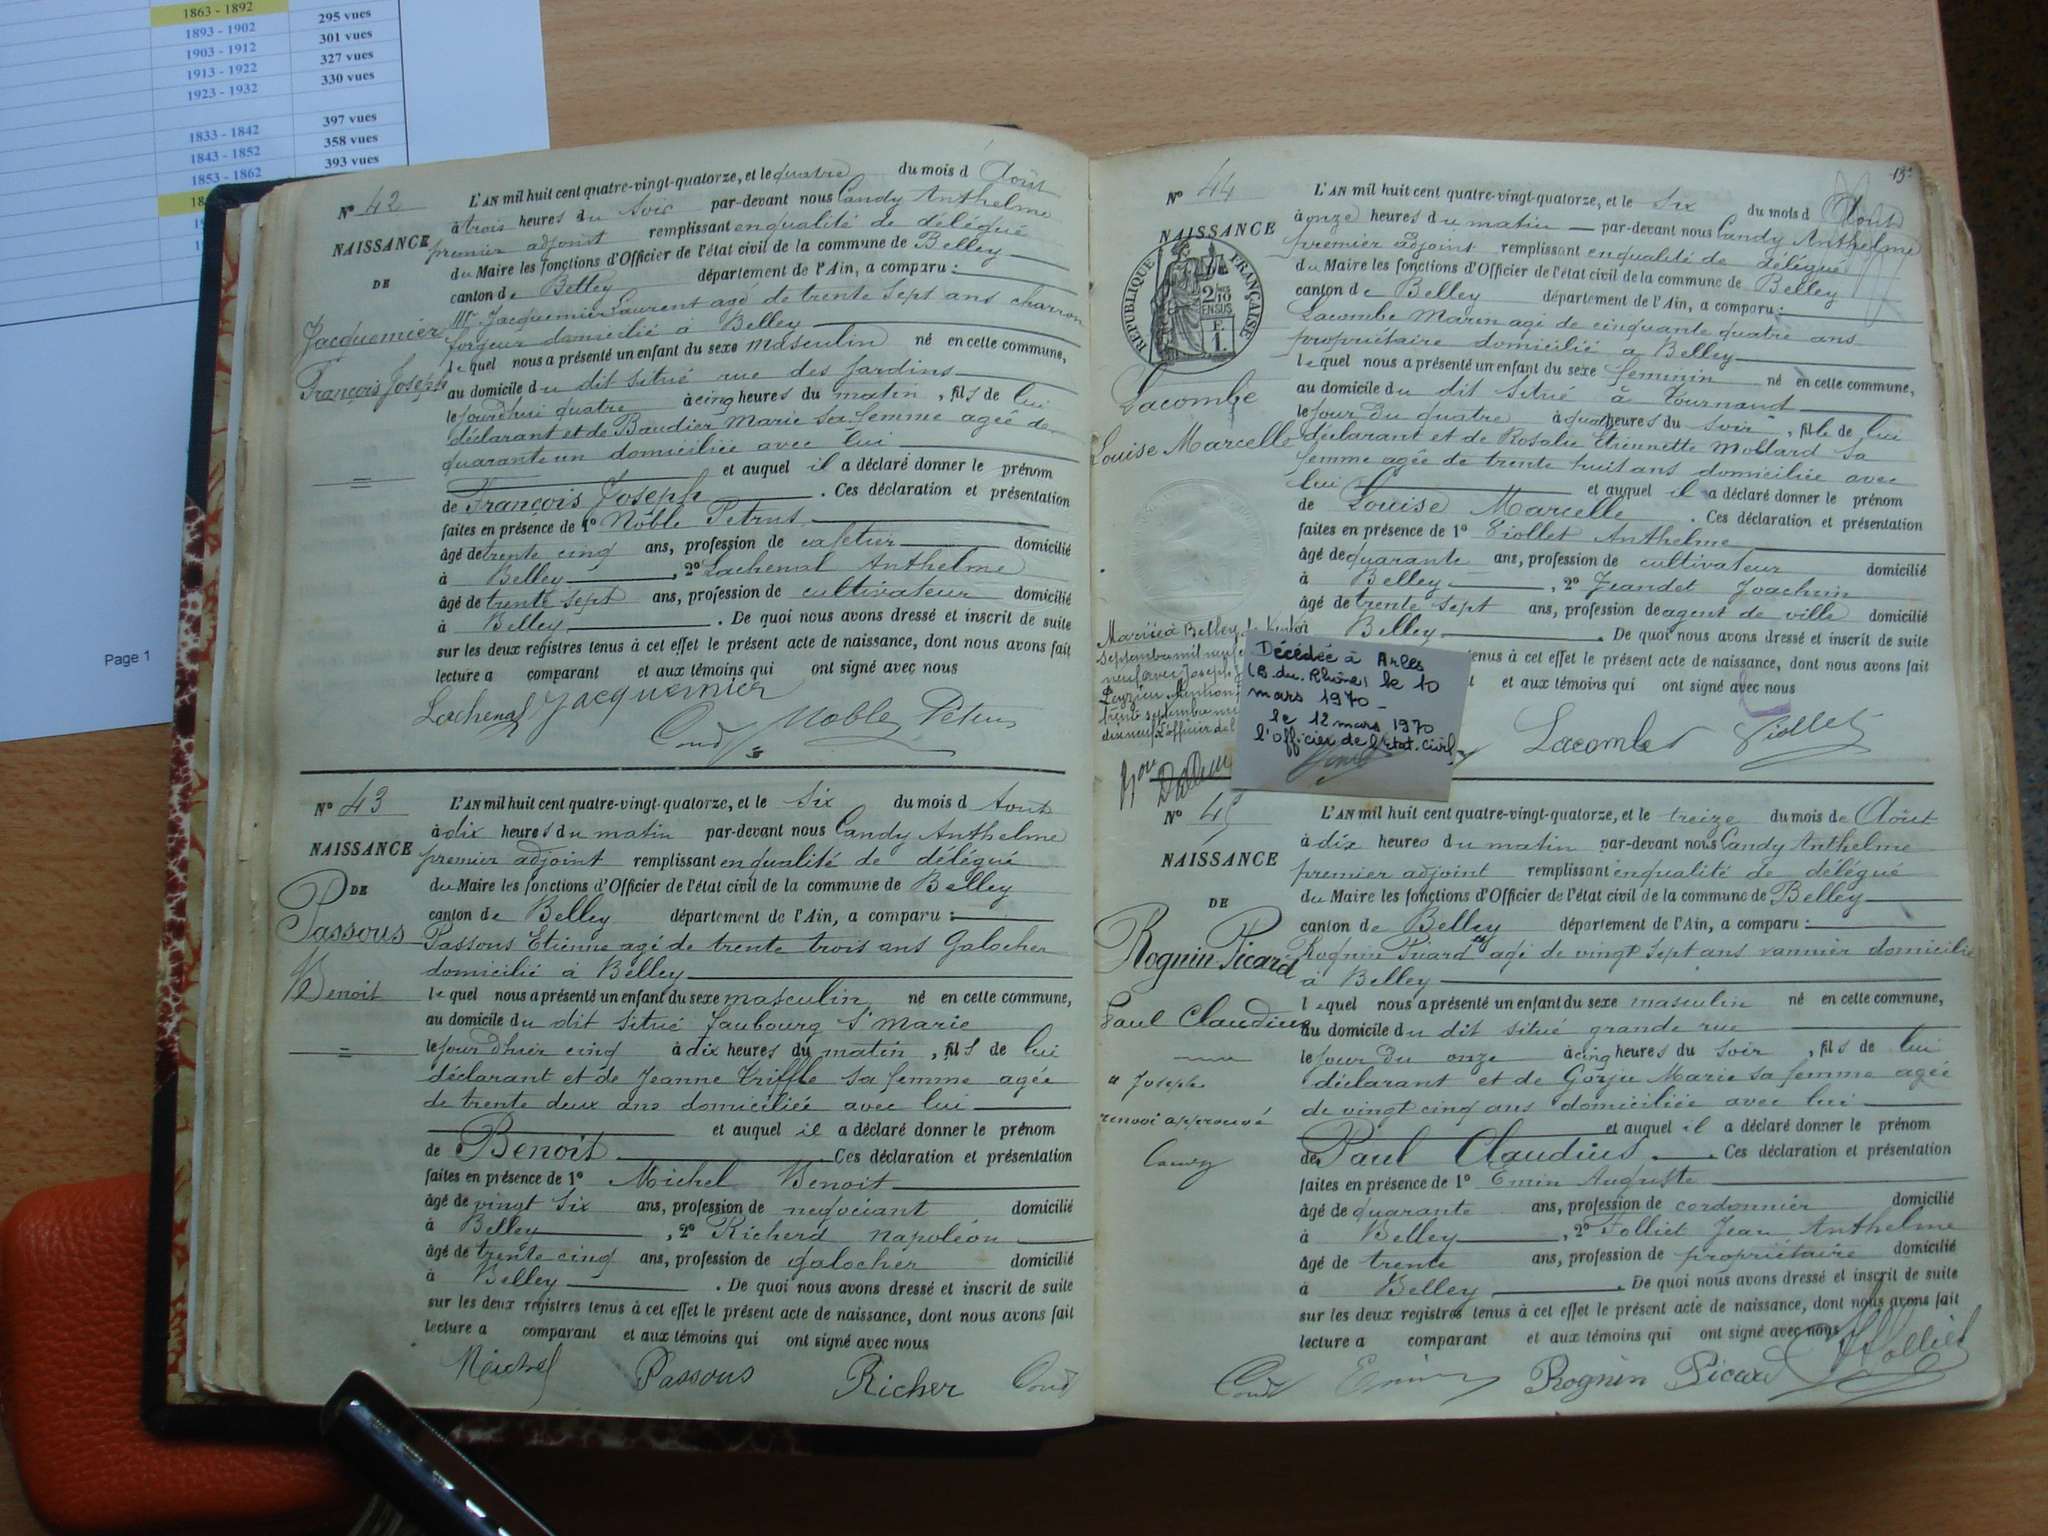 1863 - 1892
1893 - 1902 295 vues
1903 - 1912 301 vues
1913 - 1922 327 vues
1923 - 1932 330 vues
1833 - 1842 397 vues
1843 - 1852 358 vues
1853 - 1862 393 vues
Page 1
N° 42
NAISSANCE
DE
Jacquemier
François Joseph
L'AN mil huit cent quatre-vingt-quatorze, et le quatre du mois d Août
à trois heures du soir par-devant nous Candy Anthelme
premier adjoint remplissant en qualité de délégué
du Maire les fonctions d'Officier de l'état civil de la commune de Belley
canton de Belley département de l'Ain, a comparu :
Mr Jacquemier Laurent agé de trente sept ans charron
forgeur domicilié à Belley
lequel nous a présenté un enfant du sexe masculin né en cette commune,
au domicile du dit situé rue des Jardins
le jourdhui quatre à cinq heures du matin, fils de lui
déclarant et de Baudier Marie sa femme agée de
quarante un domiciliée avec lui
et auquel il a déclaré donner le prénom
de François Joseph. Ces déclaration et présentation
faites en présence de 1° Noble Petrus
âgé de trente cinq ans, profession de cafetier domicilié
à Belley, 2° Lachenal Anthelme
âgé de trente sept ans, profession de cultivateur domicilié
à Belley. De quoi nous avons dressé et inscrit de suite
sur les deux registres tenus à cet effet le présent acte de naissance, dont nous avons fait
lecture a comparant et aux témoins qui ont signé avec nous
Lachenal Jacquemier
Candy Noble Petrus
N° 43
NAISSANCE
DE
Passous
Benoit
L'AN mil huit cent quatre-vingt-quatorze, et le six du mois d Aout
à dix heures du matin par-devant nous Candy Anthelme
premier adjoint remplissant en qualité de délégué
du Maire les fonctions d'Officier de l'état civil de la commune de Belley
canton de Belley département de l'Ain, a comparu :
Passous Etienne agé de trente trois ans galocher
domicilié à Belley
lequel nous a présenté un enfant du sexe masculin né en cette commune,
au domicile du dit situé faubourg St Marie
le jour d'hier cinq à dix heures du matin, fils de lui
déclarant et de Jeanne Triffle sa femme agée
de trente deux ans domiciliée avec lui
et auquel il a déclaré donner le prénom
de Benoit. Ces déclaration et présentation
faites en présence de 1° Michel Benoit
âgé de vingt six ans, profession de negociant domicilié
à Belley, 2° Richerd napoléon
âgé de trente cinq ans, profession de galocher domicilié
à Belley. De quoi nous avons dressé et inscrit de suite
sur les deux registres tenus à cet effet le présent acte de naissance, dont nous avons fait
lecture a comparant et aux témoins qui ont signé avec nous
Michel Passous Richer Candy
13
N° 44
NAISSANCE
REPUBLIQUE FRANÇAISE
2/10 EN SUS
1 F.
Lacombe
Louise Marcelle
L'AN mil huit cent quatre-vingt-quatorze, et le six du mois d Aout
à onze heures du matin par-devant nous Candy Anthelme
premier adjoint remplissant en qualité de délégué
du Maire les fonctions d'Officier de l'état civil de la commune de Belley
canton de Belley département de l'Ain, a comparu :
Lacombe Marin agé de cinquante quatre ans
propriétaire domicilié a Belley
lequel nous a présenté un enfant du sexe feminin né en cette commune,
au domicile du dit situé à
le jour du quatre à quatre heures du soir, fille de lui
déclarant et de Rosalie Etiennette Mollard sa
femme agée de trente huit ans domiciliée avec
lui et auquel il a déclaré donner le prénom
de Louise Marcelle. Ces déclaration et présentation
faites en présence de 1° Viollet Anthelme
âgé de quarante ans, profession de cultivateur domicilié
à Belley, 2° Jeandet Joachim
âgé de trente sept ans, profession de agent de ville domicilié
Belley. De quoi nous avons dressé et inscrit de suite
tenus à cet effet le présent acte de naissance, dont nous avons fait
et aux témoins qui ont signé avec nous
Lacombe Viollet
Mariée à Belley le
septembre mil neuf
neuf avec Joseph
Peyzieu Mention
trente septembre mil
dix neuf L'officier de l
Décédée à Arles
(B. du. Rhône) le 10
mars 1970 -
le 12 mars 1970
l'officier de l'état. civil,
N° 45
NAISSANCE
DE
Rognin Picard
Paul Claudius
" Joseph
renvoi approuvé
Candy
L'AN mil huit cent quatre-vingt-quatorze, et le treize du mois de Août
à dix heures du matin par-devant nous Candy Anthelme
premier adjoint remplissant en qualité de délégué
du Maire les fonctions d'Officier de l'état civil de la commune de Belley
canton de Belley département de l'Ain, a comparu :
Rognin Picard " agé de vingt sept ans vannier domicilié
à Belley
lequel nous a présenté un enfant du sexe masculin né en cette commune,
au domicile du dit situé grande rue
le jour du onze à cinq heures du soir, fils de lui
déclarant et de Gorju Marie sa femme agée
de vingt cinq ans domiciliée avec lui
et auquel il a déclaré donner le prénom
de Paul Claudius. Ces déclaration et présentation
faites en présence de 1° Emin Auguste
âgé de quarante ans, profession de cordonnier domicilié
à Belley, 2° Folliet Jean Anthelme
âgé de trente ans, profession de propriétaire domicilié
à Belley. De quoi nous avons dressé et inscrit de suite
sur les deux registres tenus à cet effet le présent acte de naissance, dont nous avons fait
lecture a comparant et aux témoins qui ont signé avec nous
Candy Emin Rognin Picard Folliet